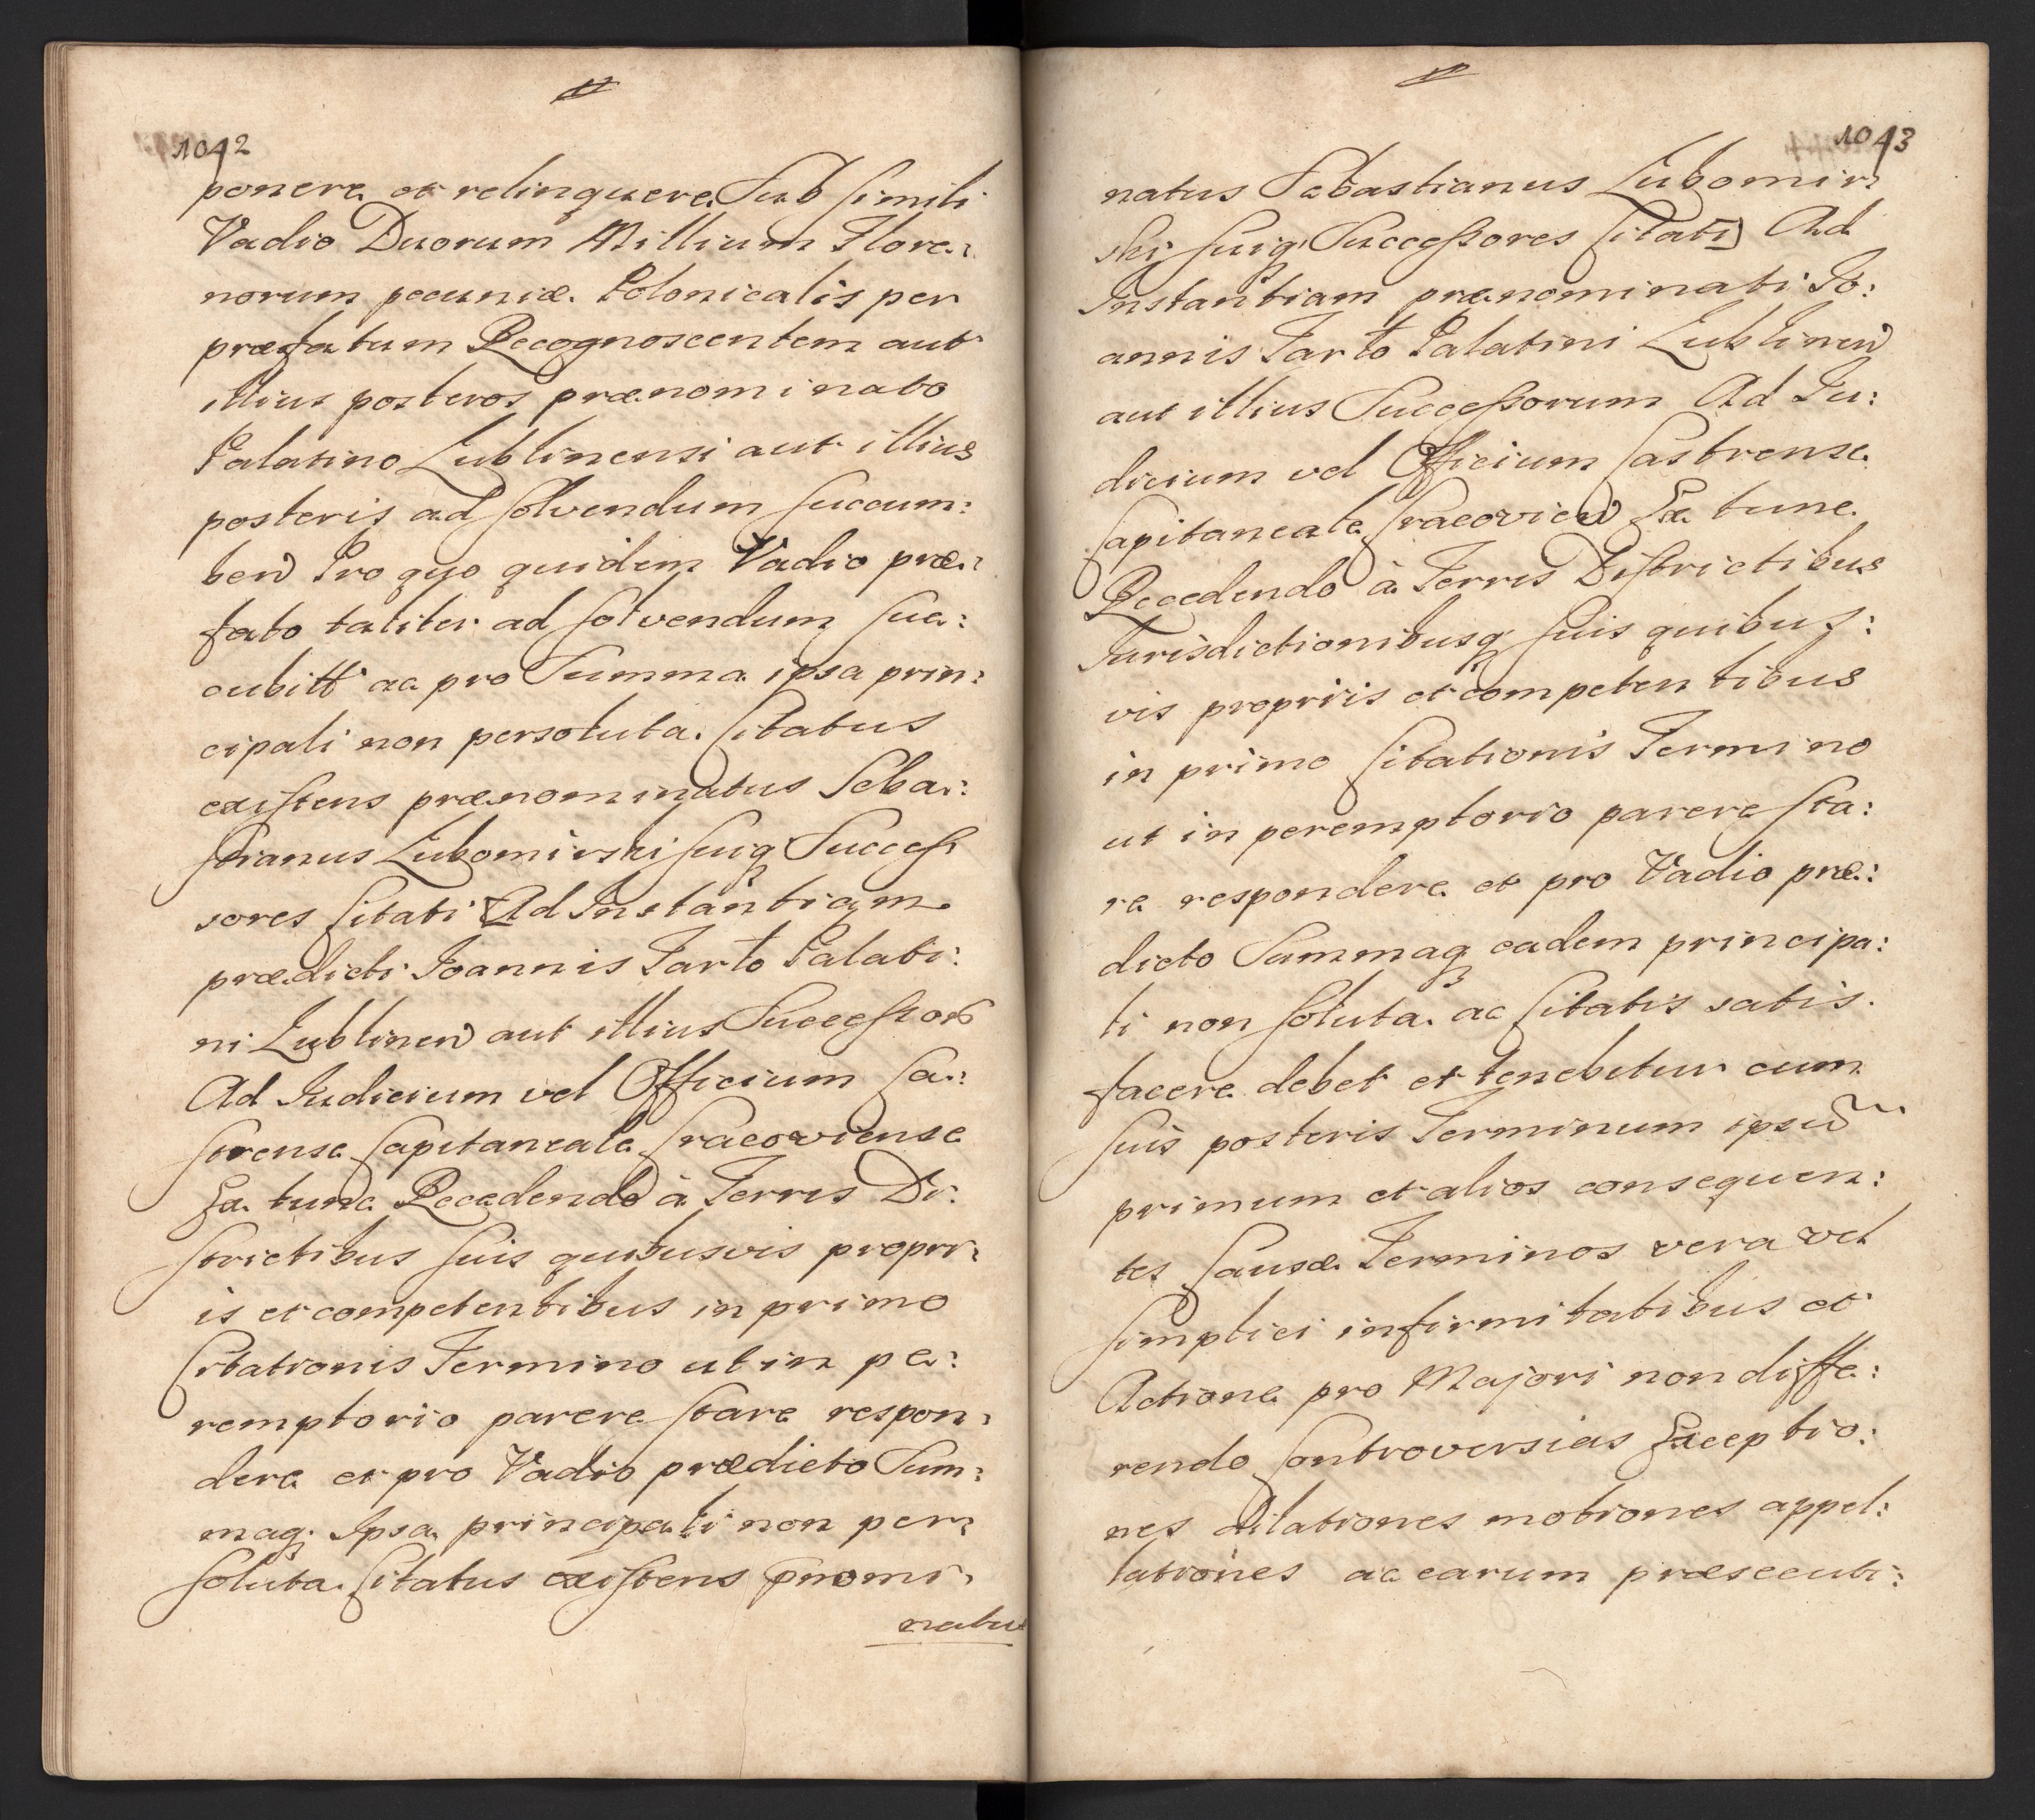 1042
ponere et relinquere Sub simili
Vadio Duorum Millium Flore:
norum pecuniæ Polonicalis per
præfatum Recognoscentem aut
illius posteros prænominato
Palatino Lublinensi aut illius
posteris ad solvendum succum:
ben Pro quo quidem Vadio præ:
fato taliter ad solvendum suc:
cubitt ac pro Summa ipsa prin:
cipali non persoluta Citatus
existens prænominatus Seba:
stianus Lubomirski suiq Succes
sores Citati Ad Instantiam
prædicti Joannis Tarło Palati:
ni Lublinen aut illius Successor
Ad Iudicium vel Officium Ca:
strense Capitaneale Cracoviense
Ex tunc Recedendo à Terris Di:
strictibus suis quibusvis propri:
is et competentibus in primo
Citationis Termino ut in pe:
remptorio parere stare respon:
dere et pro Vadio prædicto Sum:
maq Ipsa principali non per:
soluta Citatus existens pnomi:
natus
1043
natus Sebastianus Lubomir:
ski suiq Successores Citati Ad
Instantiam prænominati Jo:
annis Tarło Palatini Lublinen
aut illius Successorum Ad Iu:
dicium vel Officium Castrense
Capitaneale Cracovien Ex tunc
Recedendo à Terris Districtibus
Iurisdictionibusq suis quibus:
vis propriis et competentibus
in primo Citationis Termino
ut in peremptorio parere sta:
re respondere et pro Vadio præ:
dicto Summaq eadem principa:
li non soluta ac Citatis satis
facere debet et tenebitur cum
suis posteris Terminum ipsu
primum et alios consequen:
tes Causæ Terminos vera vel
simplici infirmitatibus et
Actione pro Majori non diffe:
rendo Controversias Exceptio:
nes Dilationes motiones appel:
lationes ac earum præsecuti: